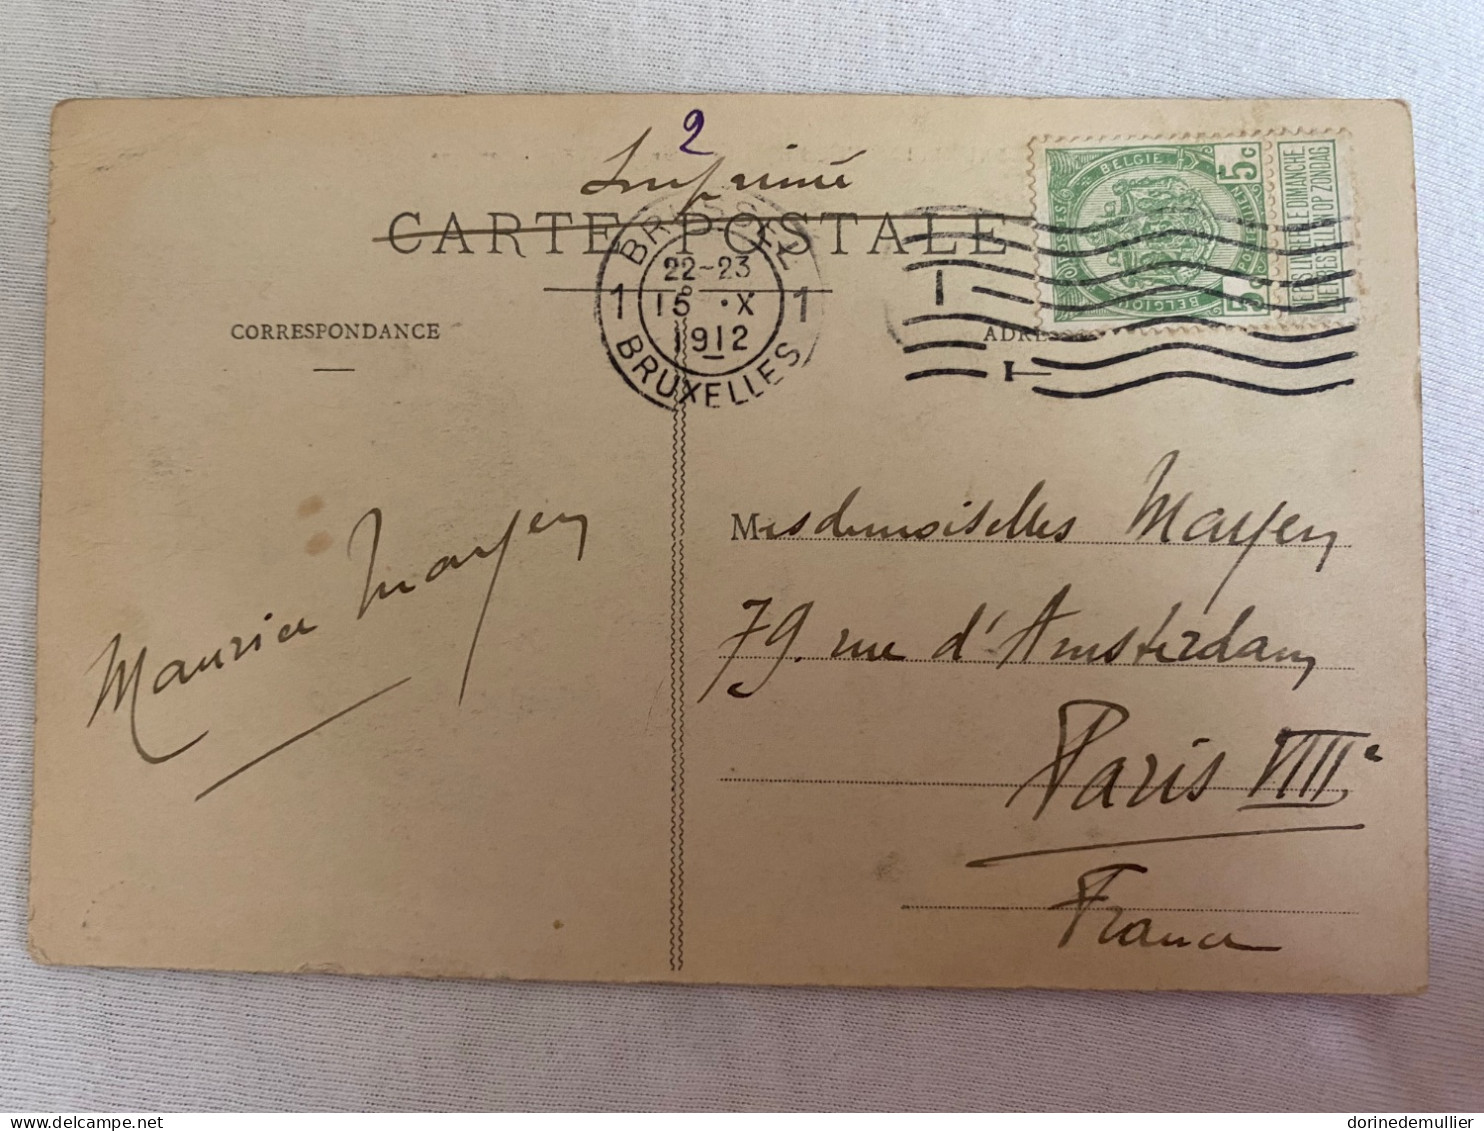 2
Imprimé
CARTE POSTALE
BRUSSEL
22-23
1 15 ·X 1
1912
BRUXELLES
5c 5c
BELGIE
BELGIQUE
NE PAS LIVRER LE DIMANCHE
NIET BESTELLEN OP ZONDAG
CORRESPONDANCE
ADRES
Maurice Mayen
Mesdemoiselles Mayen
79. rue d'Amsterdam
Paris VIIIe
France
delcampe.net
dorinedemullier